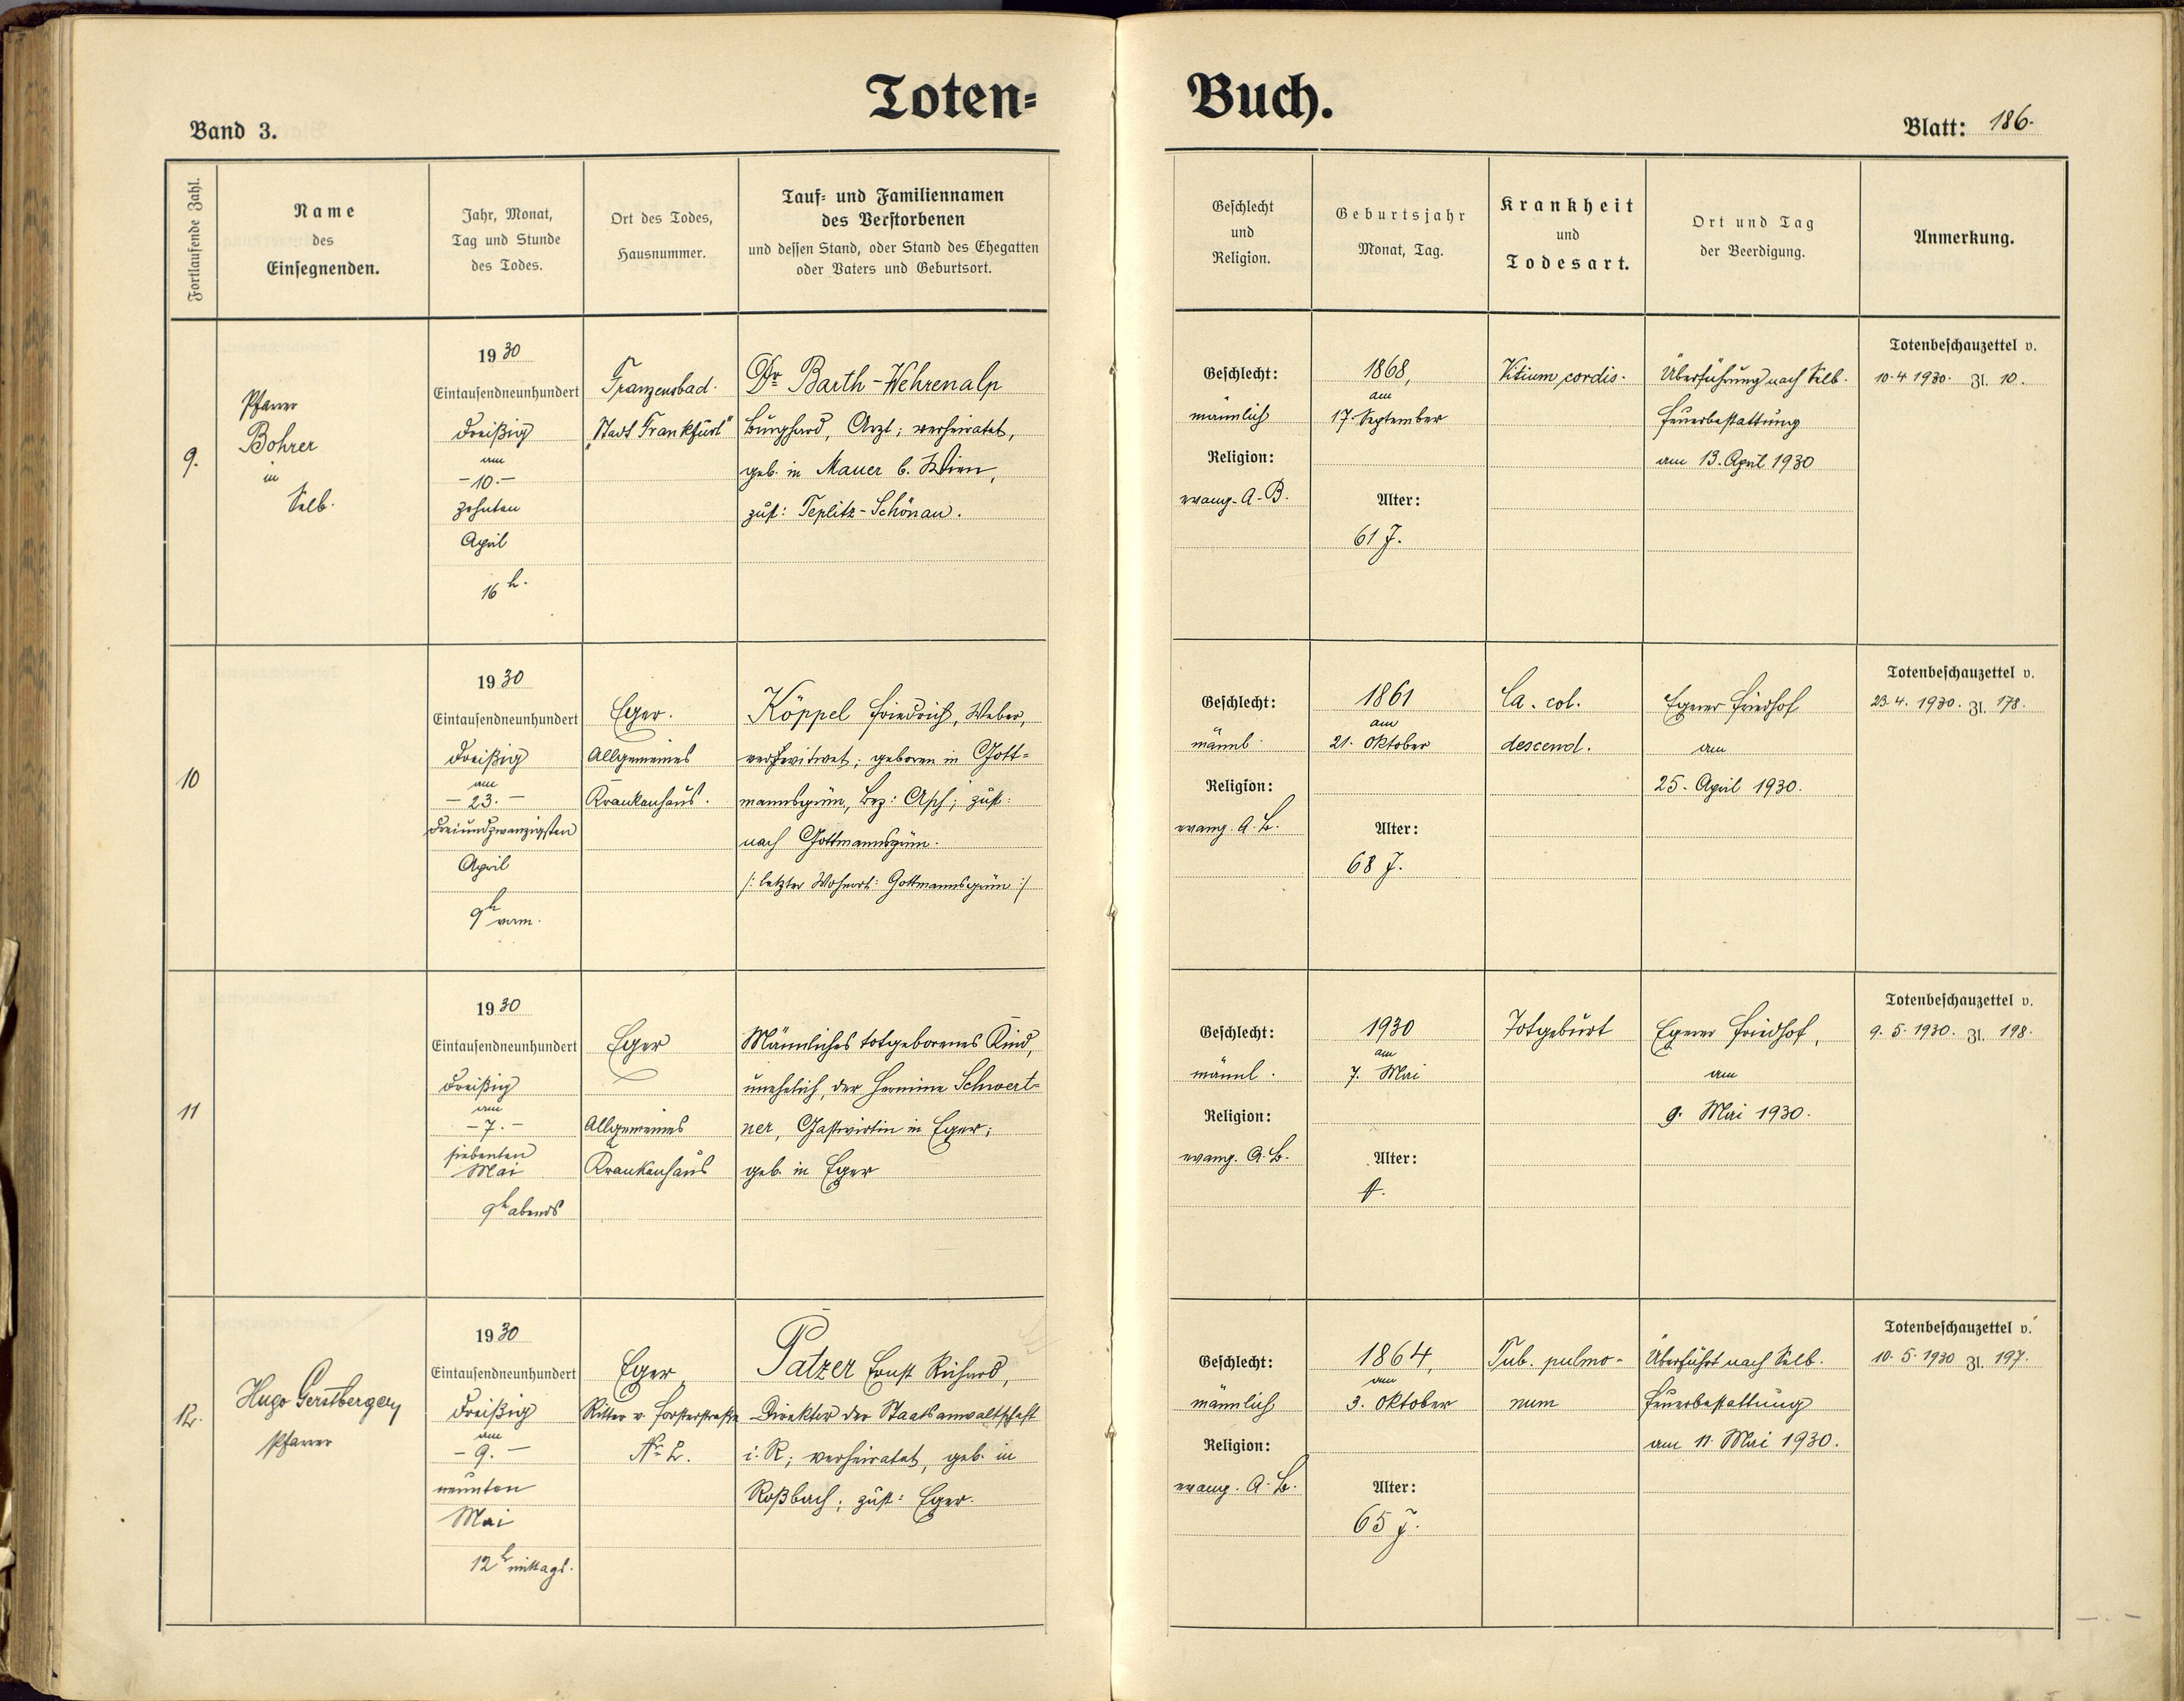 Toten- Buch.
Band 3.
Blatt: 186.
Fortlaufende Zahl.
Name
des
Einsegnenden.
Jahr, Monat,
Tag und Stunde
des Todes.
Ort des Todes,
Hausnummer.
Tauf- und Familiennamen
des Verstorbenen
und dessen Stand, oder Stand des Ehegatten
oder Vaters und Geburtsort.
Geschlecht
und
Religion.
Geburtsjahr
Monat, Tag.
Krankheit
und
Todesart.
Ort und Tag
der Beerdigung.
Anmerkung.
9.
Pfarrer
Bohrer
in
Selb.
1930
Eintausendneunhundert
dreißig
am
- 10. -
zehnten
April
16 h.
Franzensbad.
"Stadt Frankfurt"
Dr Barth-Wehrenalp
Burghard, Arzt; verheiratet,
geb. in Mauer b. Wien,
zust: Teplitz-Schönau.
Geschlecht:
männlich
Religion:
evang. A. B.
1868,
am
17. September
Alter:
61 J.
Vitium cordis.
Überführung nach Selb.
Feuerbestattung
am 13. April 1930
Totenbeschauzettel v.
10. 4. 1930. Zl. 10.
10
1930
Eintausendneunhundert
dreißig
am
- 23. -
dreiundzwanzigsten
April
9 h vorm.
Eger.
Allgemeines
Krankenhaus.
Köppel Friedrich, Weber,
verwitwet; geboren in Gott-
mannsgrün, Bez: Asch; zust:
nach Gottmannsgrün.
/: letzter Wohnort: Gottmannsgrün :/
Geschlecht:
männl.
Religion:
evang. A. B.
1861
am
21. Oktober
Alter:
68 J.
Ca. col.
descend.
Egerer Friedhof
am
25. April 1930.
Totenbeschauzettel v.
23. 4. 1930. Zl. 178.
11
1930
Eintausendneunhundert
dreißig
am
- 7. -
siebenten
Mai
9 h abends
Eger
Allgemeines
Krankenhaus
Männliches totgeborenes Kind,
unehelich, der Hermine Schwert-
ner, Gastwirtin in Eger;
geb. in Eger
Geschlecht:
männl.
Religion:
evang. A. B.
1930
am
7. Mai
Alter:
Totgeburt
Egerer Friedhof,
am
9. Mai 1930.
Totenbeschauzettel v.
9. 5. 1930. Zl. 198.
12.
Hugo Gerstberger,
Pfarrer
1930
Eintausendneunhundert
dreißig
am
- 9. -
neunten
Mai
12 h mittags.
Eger,
Ritter v. Forsterstraße
Nr 2.
Patzer Ernst Richard,
Direktor der Staatsanwaltschaft
i. R; verheiratet, geb. in
Roßbach; zust: Eger.
Geschlecht:
männlich
Religion:
evang. A. B.
1864,
am
3. Oktober
Alter:
65 J.
Tub. pulmo-
num
Überführt nach Selb.
Feuerbestattung
am 11. Mai 1930.
Totenbeschauzettel v.
10. 5. 1930 Zl. 197.